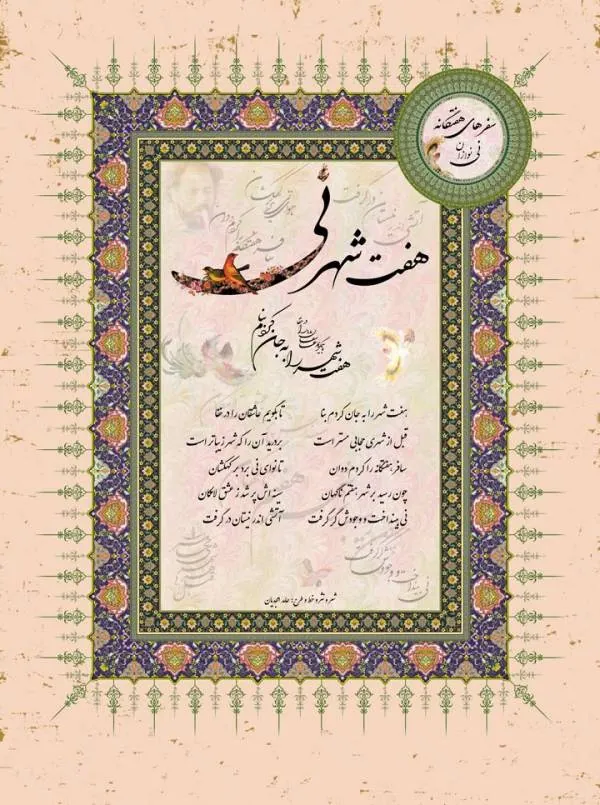 سفرهای هفتگانه
نی نوازان
هفت شهر نی
هفت شهر را به جان کردم بنا
هفت شهر را به جان کردم بنا تا بگویم عاشقان را در خفا
قبل از شهری حجابی مستتر است بردرید آن را که شهر زیباتر است
ساغر هفتگانه را کردم دوان تا نوای نی برد بر کهکشان
چون رسید بر شهر هفتم ناگهان سینه اش پر شد ز عشق لامکان
نی بینداخت و وجودش گر گرفت آتشی اندر نیستان در گرفت
شعر و نثر و خط و طرح: حامد امجدیان